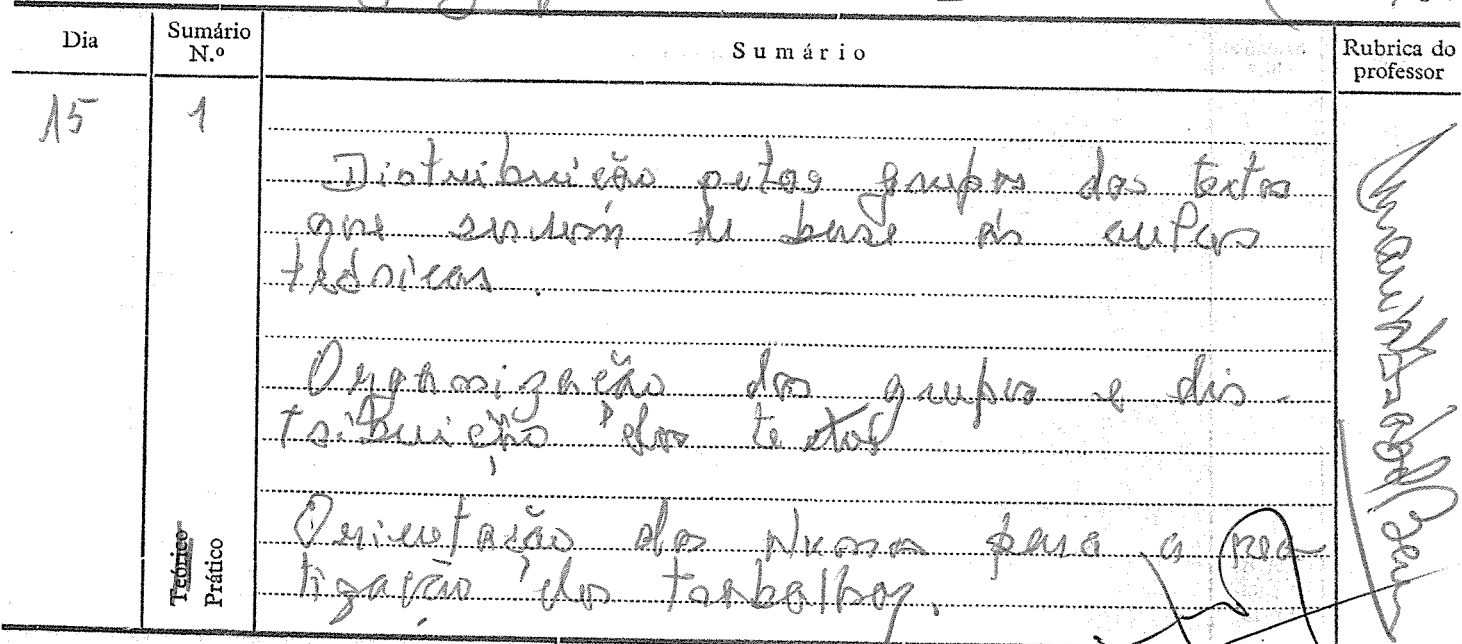 Dia
Sumário N.º
Sumário
Rubrica do professor
15
1
Distribuição pelos grupos dos textos
que servem de base às aulas
teóricas.
Organização dos grupos e dis-
tribuição dos textos
Orientação dos alunos para a rea
lização dos trabalhos.
Teórico
Prático